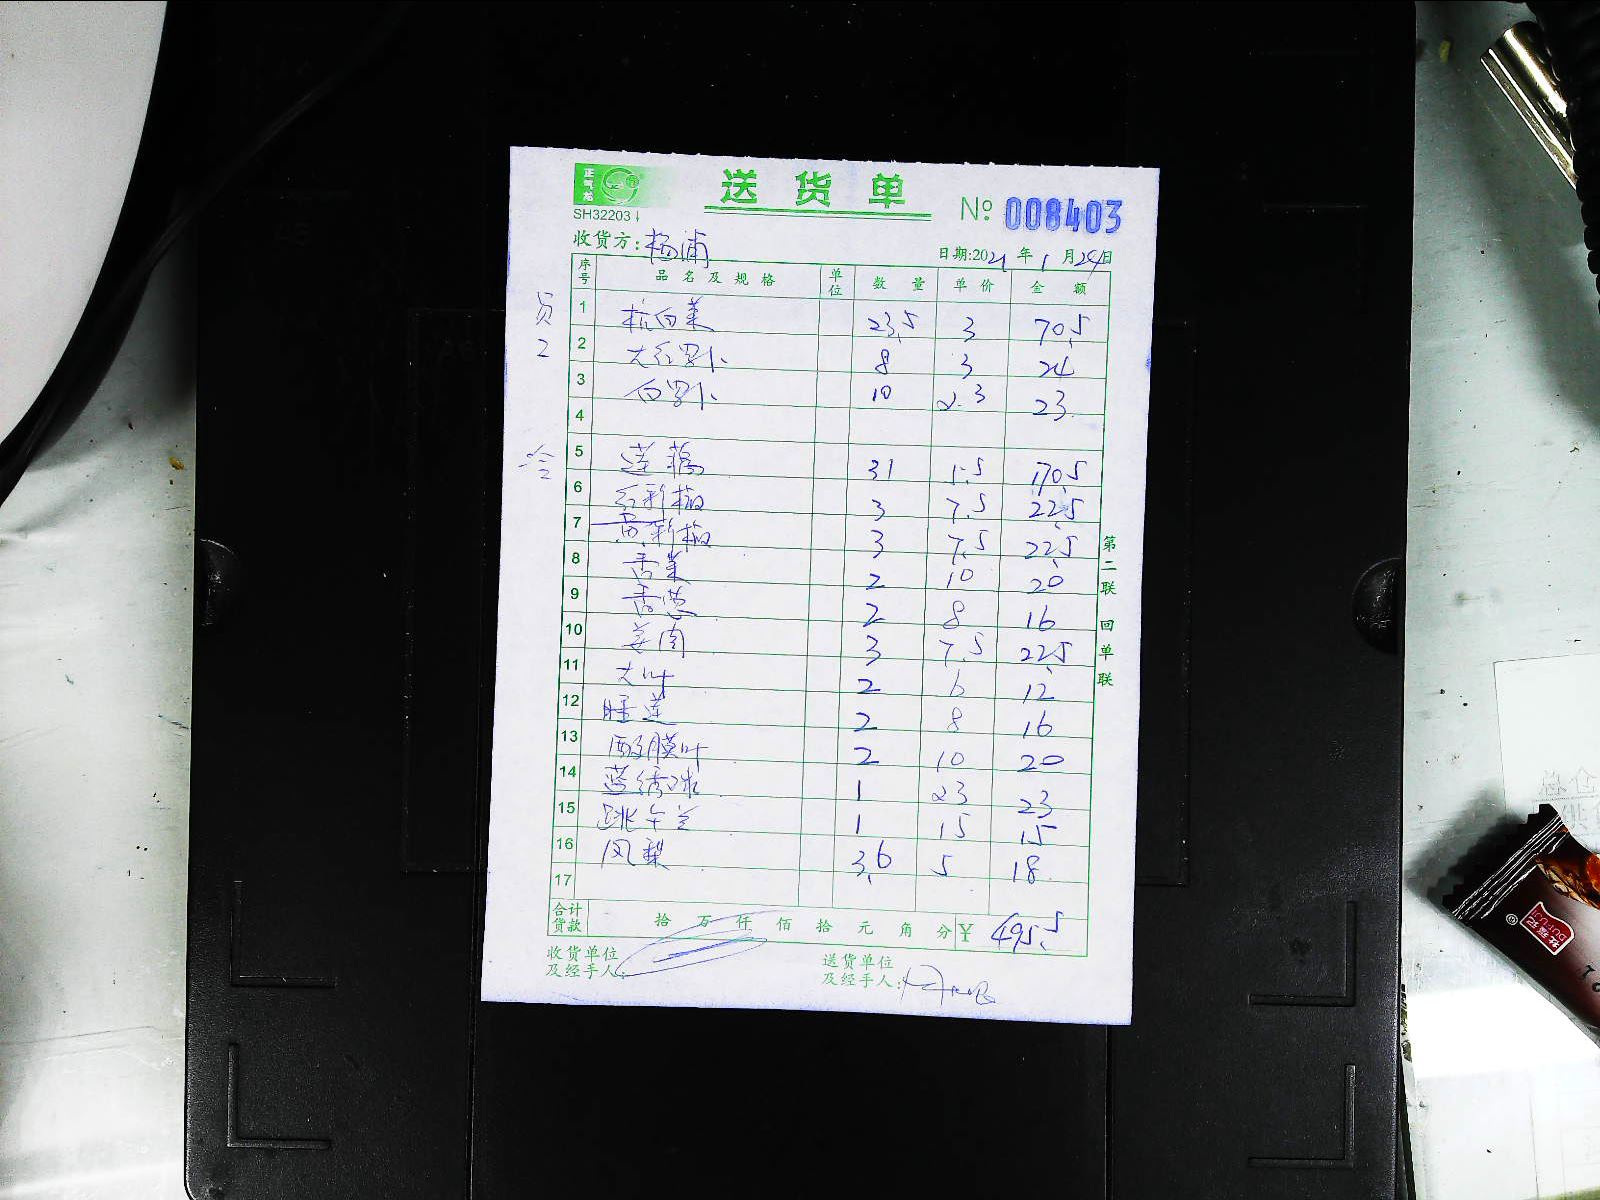 正气龙
送货单
№ 008403
SH32203
收货方: 杨浦
日期:2021年1月24日
序号 品名及规格 单位 数量 单价 金额
员2
1 杭白菜 23.5 3 70.5
2 大红萝卜 8 3 24
3 白萝卜 10 2.3 23
4
冷
5 莲藕 31 5.5 170.5
6 红彩椒 3 7.5 22.5
7 黄彩椒 3 7.5 22.5
8 香菜 2 10 20
9 香葱 2 8 16
10 姜肉 3 7.5 22.5
11 大叶 2 6 12
12 睡莲 2 8 16
13 2 10 20
14 蓝绣球 1 23 23
15 跳午兰 1 15 15
16 凤梨 3.6 5 18
17
合计货款 拾 万 仟 佰 拾 元 角 分 ¥ 495.5
收货单位及经手人:
送货单位及经手人:
第二联 回单联